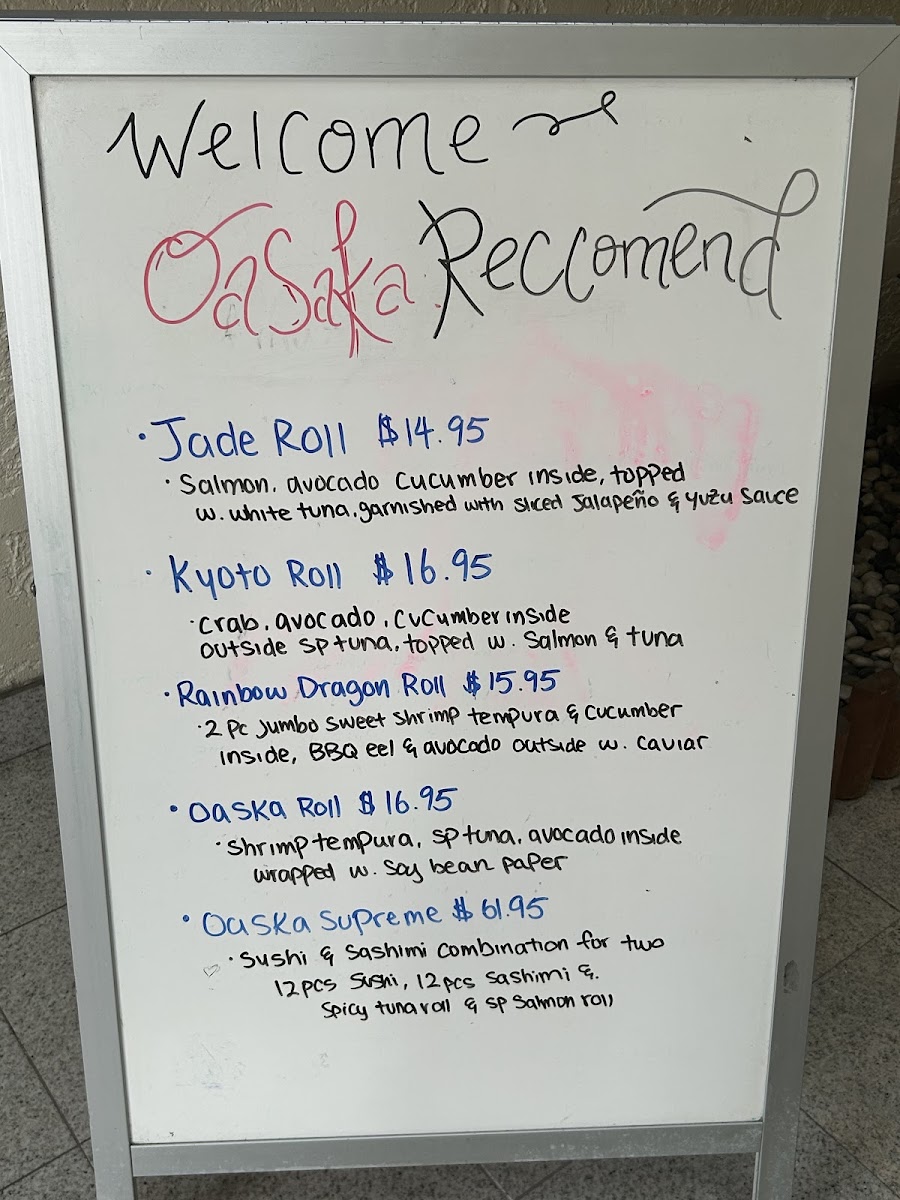 Welcome
Oasaka Reccomend
· Jade Roll $14.95
· Salmon, avocado cucumber inside, topped
w. white tuna, garnished with sliced Jalapeño & yuzu sauce
· Kyoto Roll $16.95
· crab, avocado, cucumber inside
outside sp tuna, topped w. Salmon & tuna
· Rainbow Dragon Roll $15.95
· 2 pc Jumbo sweet shrimp tempura & cucumber
inside, BBQ eel & avocado outside w. caviar
· Oaska Roll $16.95
· shrimp tempura, sp tuna, avocado inside
wrapped w. soy bean paper
· Oaska Supreme $61.95
· Sushi & Sashimi combination for two
12pcs Sushi, 12pcs Sashimi &
Spicy tuna roll & sp Salmon roll